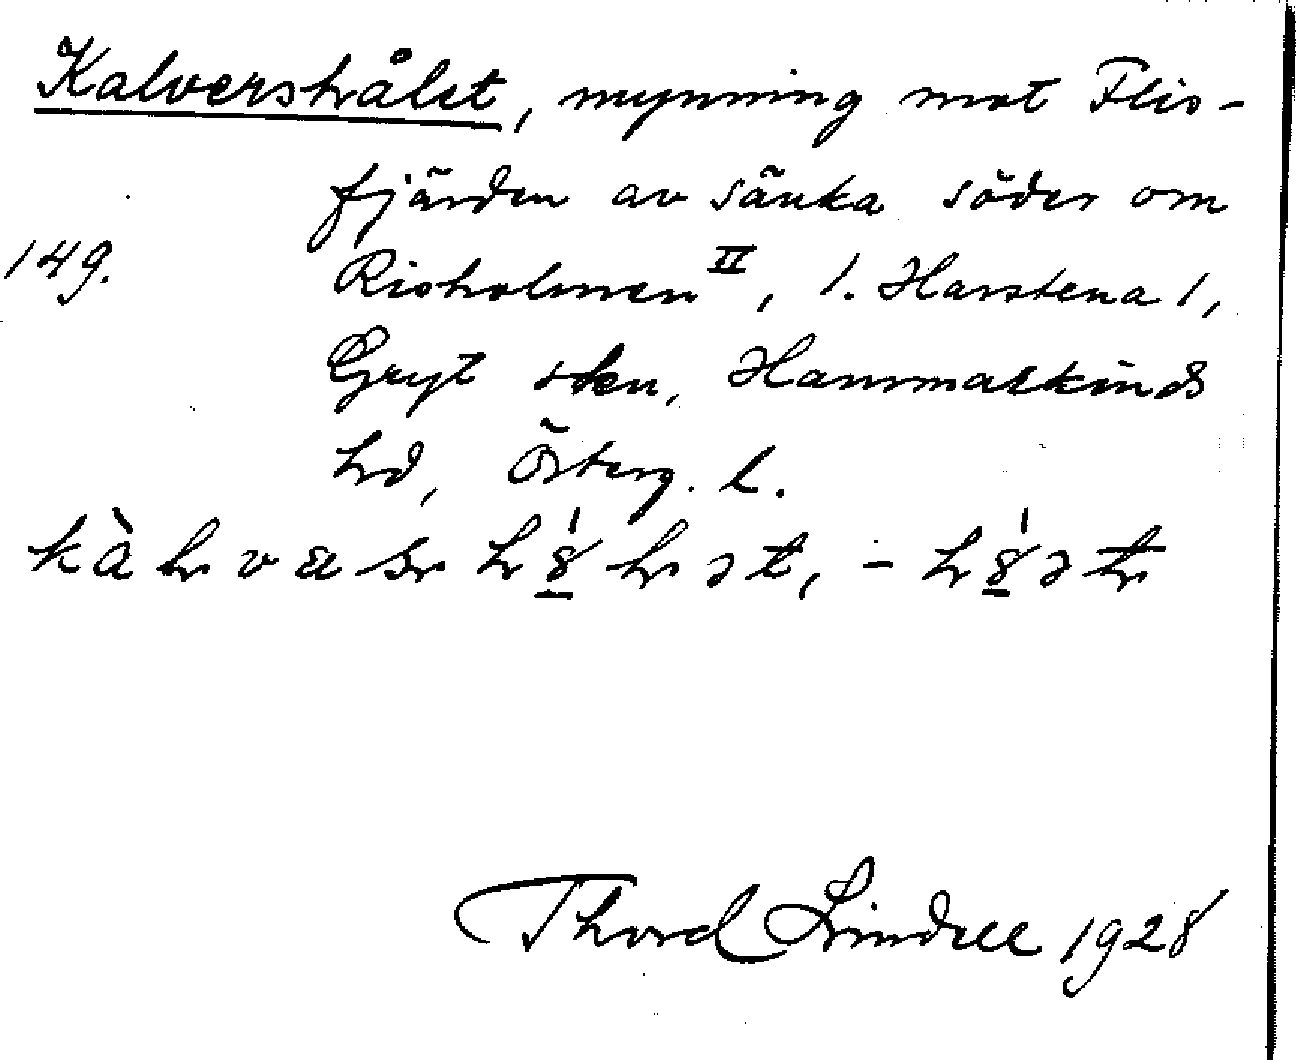 Kalvershålet, mynning mot Flis-
fjärden av sänka söder om
149. Risholmen II, 1. Harstena 1,
Gryt skn, Hammarkinds
hd, Österg. l.
Thord Lindell 1928